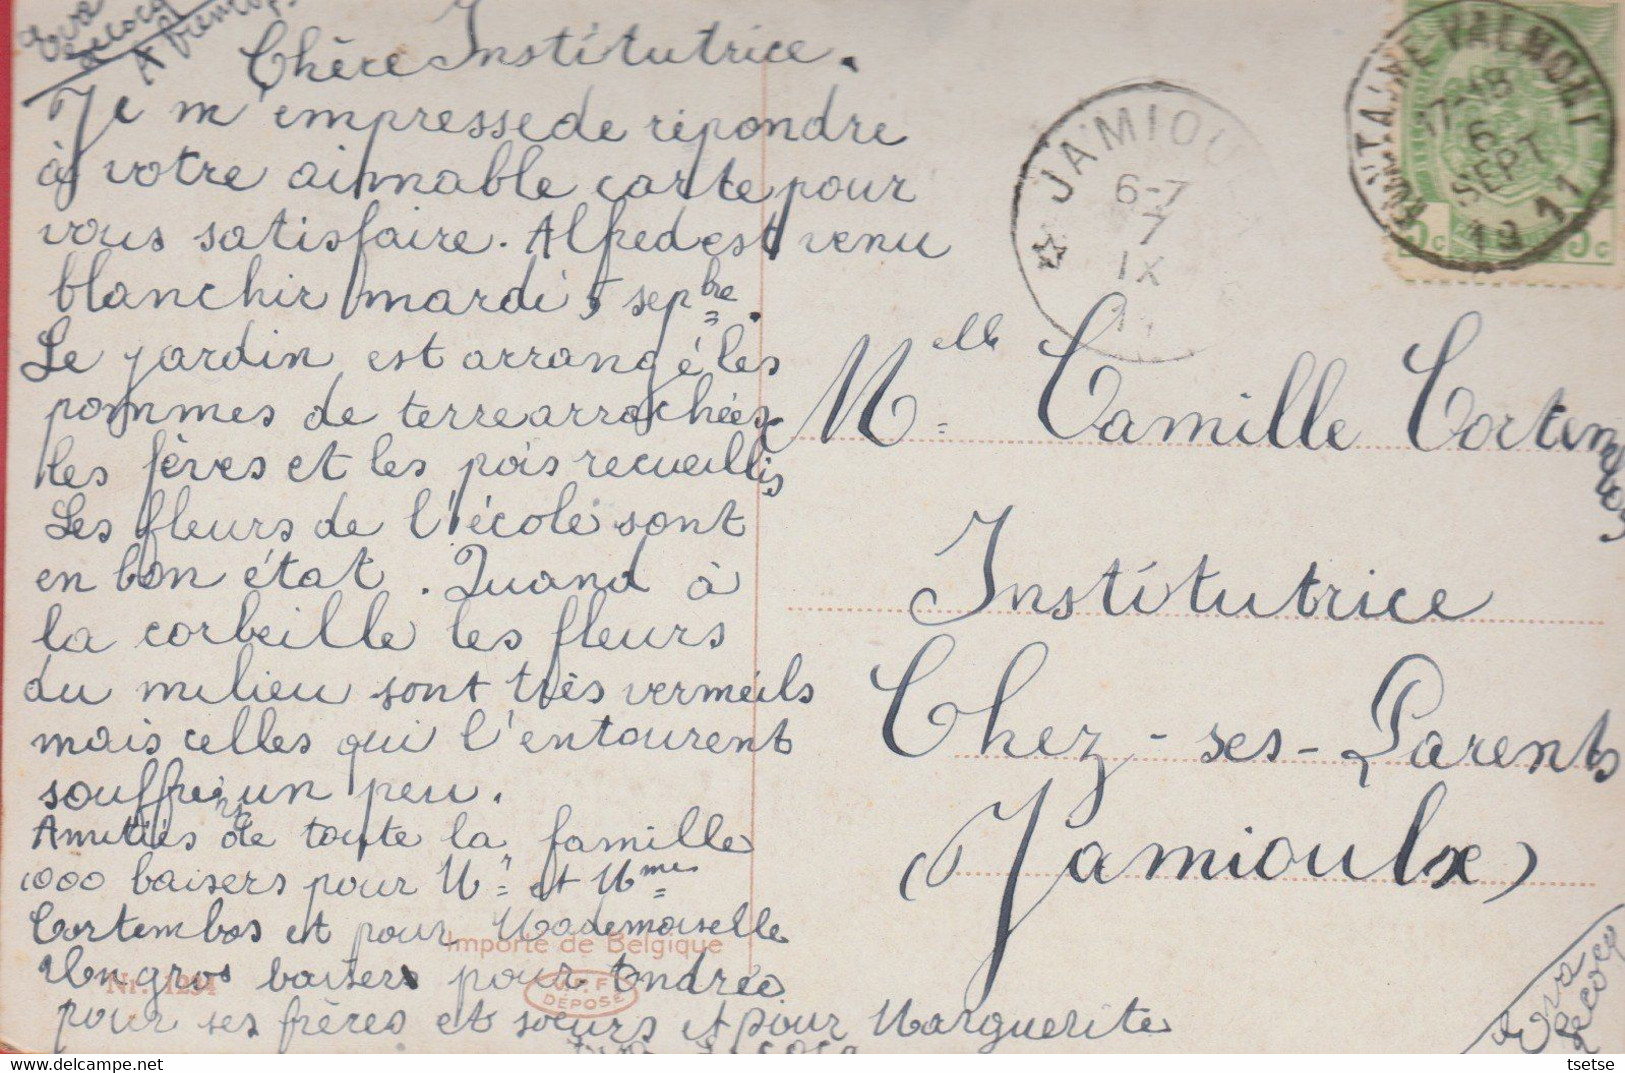 Eva
Lecocq
A bientôt
Chère Institutrice.
Je m'empresse de répondre
à votre aimnable carte pour
vous satisfaire. Alfred est venu
blanchir mardi 5 sepbre.
Le jardin est arrangé les
pommes de terre arrachées
les fèves et les pois recueillis
Les fleurs de l'école sont
en bon état. Quand à
la corbeille les fleurs
du milieu sont très vermeils
mais celles qui l'entourent
souffreint un peu.
Amitiés de toute la famille
1000 baisers pour Mr et Mme
Cortembos et pour Mademoiselle
Un gros baisers pour Andrée
pour ses frères et sœurs et pour Marguerite
Eva Lecocq
Importé de Belgique
Nr. 1294
DÉPOSÉ
JAMIOU
6-7
7
IX
FONTAINE-VALMONT
17-18
6
SEPT
1911
5c 5c
Melle Camille Cortembos
Institutrice
Chez-ses-Parents
(Jamioulx)
Eva
Lecocq
tsetse